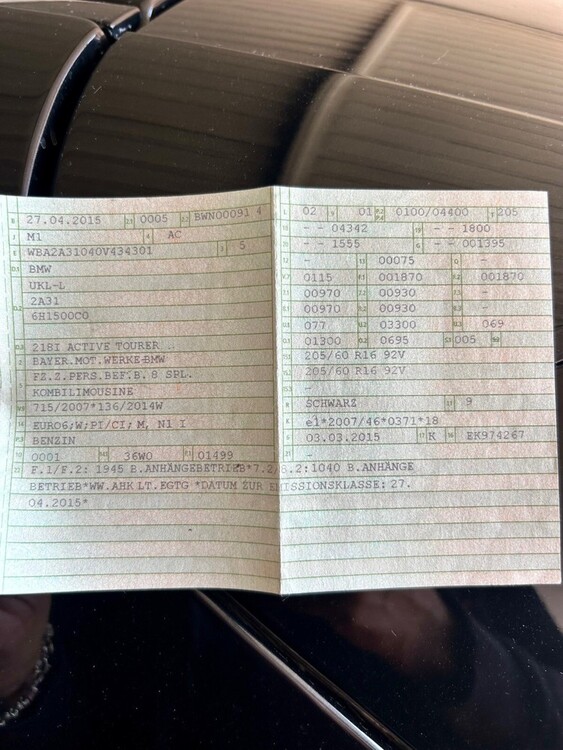 B 27.04.2015 2.1 0005 2.2 BWN00091 4
J M1 4 AC
E WBA2A31040V434301 3 5
D.1 BMW
UKL-L
D.2 2A31
6H1500C0
D.3 218I ACTIVE TOURER
2 BAYER.MOT.WERKE-BMW
5 FZ.Z.PERS.BEF.B. 8 SPL.
KOMBILIMOUSINE
V.9 715/2007*136/2014W
14 EURO6;W;PI/CI; M, N1 I
P.3 BENZIN
10 0001 14.1 36W0 P.1 01499
L 02 9 01 P.2 P.4 0100/04400 T 205
18 - - 04342 19 - - 1800
20 - - 1555 G - - 001395
12 - 13 00075 Q -
V.7 0115 F.1 001870 F.2 001870
7.1 00970 7.2 00930 7.3 -
8.1 00970 8.2 00930 8.3 -
U.1 077 U.2 03300 U.3 069
O.1 01300 O.2 0695 S.1 005 S.2
15.1 205/60 R16 92V
15.2 205/60 R16 92V
15.3 -
R SCHWARZ 11 9
K e1*2007/46*0371*18
6 03.03.2015 17 K 16 EK974267
22 F.1/F.2: 1945 B.ANHÄNGEBETRIEB*7.2/8.2:1040 B.ANHÄNGE
BETRIEB*WW.AHK LT.EGTG *DATUM ZUR EMISSIONSKLASSE: 27.
04.2015*